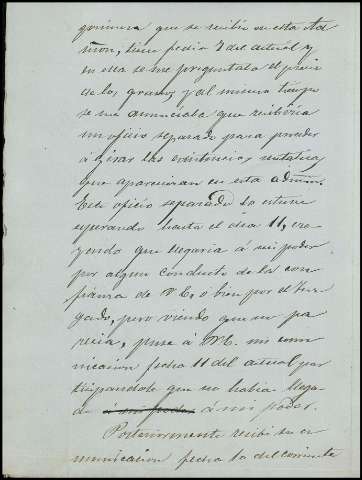 primera que se recibio en esta Ad
mon, tiene fecha 7 del actual y
en ella se me preguntaba el precio
de los granos, y al mismo tiempo
se me anunciaba que recibiria
un oficio separado para proceder
á girar las existencias
que aparecieran en esta admon.
Este oficio separado lo estuve
esperando hasta el dia 11, cre
yendo que llegaria á mi poder
por algun conducto de la con
fianza de V.E, o bien por el Juz
gado, pero viendo que no pa
recia, puse á V.E. mi comu
nicacion fecha 11 del actual par
ticipandole que no habia llega
do á mi poder á mi poder.
Posteriormente recibi su co
municacion fecha 10 del corriente